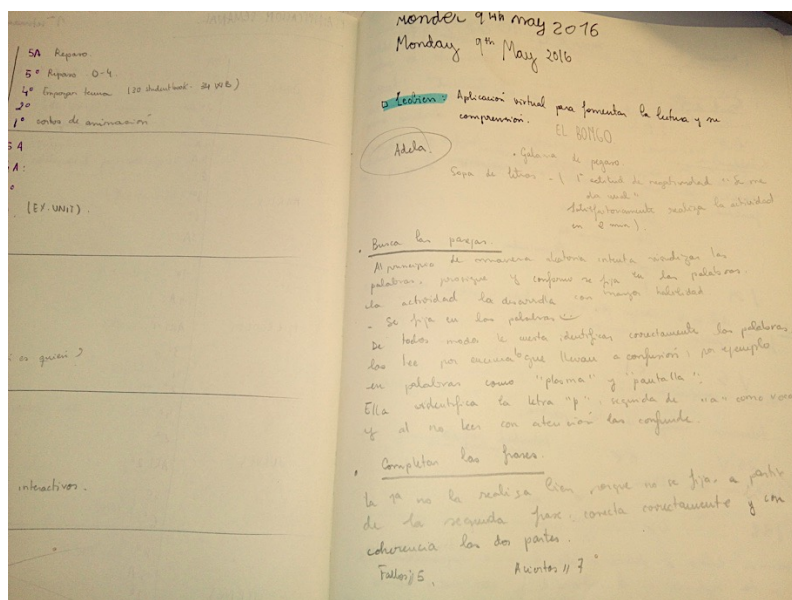 5A Repaso.
5º Repaso 0-4.
4º Empezar tema (20 student book. 34 WB)
2º
1º cortos de animación
5 A
A:
(EX. UNIT).
es quién?
interactivos.
Monday 9th May 2016
Monday 9th May 2016
Leobien: Aplicación virtual para fomentar la lectura y su
comprensión.
EL BONGO
Adela.
Sopa de letras - ( 1º actitud de negatividad "Se me
da mal"
Satisfactoriamente realiza la actividad
en 2 min).
Busca las parejas.
Al principio de manera aleatoria intenta visualizar las
palabras, prosigue y conforme se fija en las palabras
la actividad la desarrolla con mayor habilidad
- Se fija en las palabras
De todos modos le cuesta identificar correctamente las palabras
las lee por encima lo que llevan a confusión; por ejemplo
en palabras como "plasma" y "pantalla".
Ella identifica la letra "p", seguida de "a" como
y al no leer con atención las confunde.
Completar las frases.
La 1ª no la realiza bien, porque no se fija, a partir
de la segunda frase, conecta correctamente y con
coherencia las dos partes.
Fallos // 5. Aciertos // 7